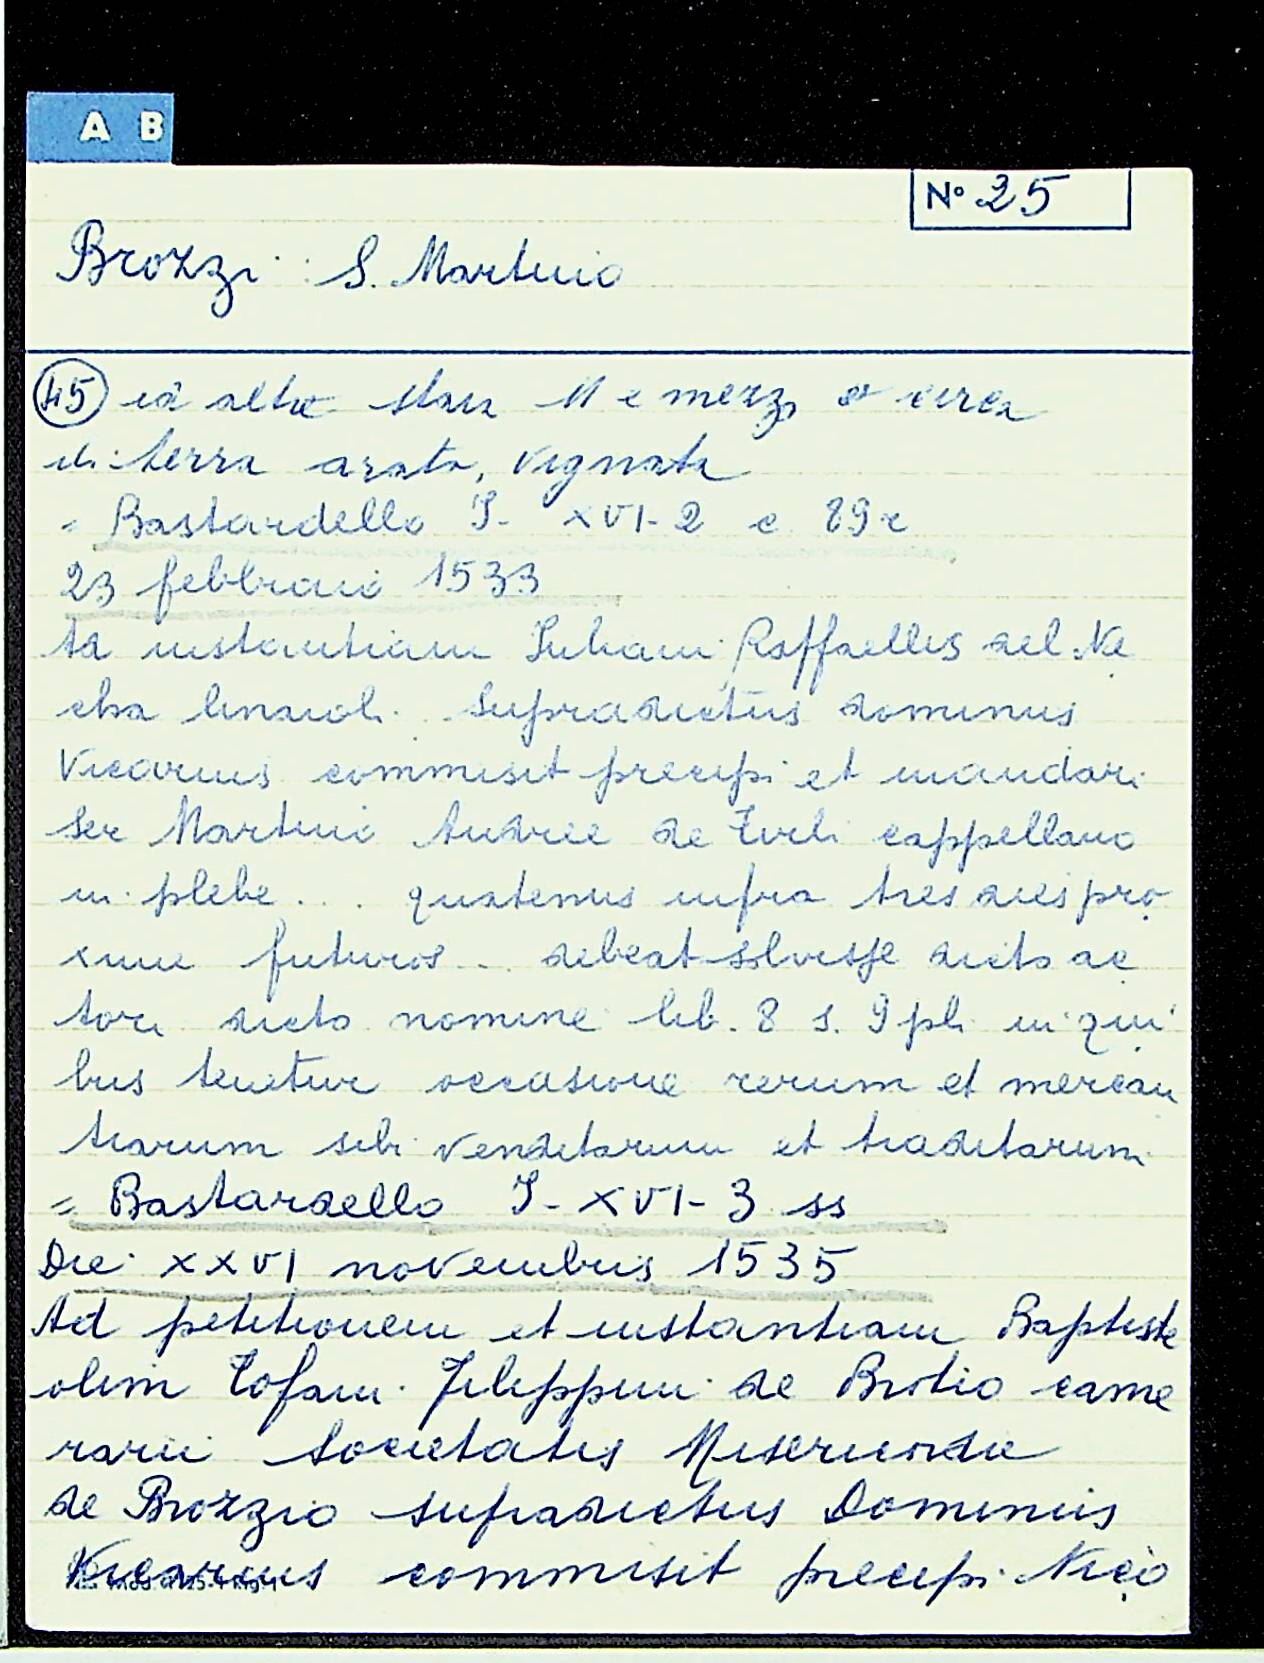 A B
N° 25
Brozzi: S. Martino
45 ed altre staia 11 e mezzo circa
di terra arata, vignata
= Bastardello I- XVI-2 c 89r
23 febbraio 1533
Ad instantiam Iuliani Raffaellis del Ne
cha linaioli. Supradictus dominus
Vicarius commisit precipi et mandari
Ser Martino Andree de cappellano
in plebe ... quatenus infra tres dies pro
xime futuros .. debeat solvisse dicto ac
tori dicto nomine lib. 8 s. 9 pli in qui
bus tenetur occasione rerum et mercan
tiarum sibi venditarum et traditarum
= Bastardello I- XVI-3 ss
Die XXVI novembris 1535
Ad petitionem et instantiam Baptiste
olim Tofani Filippini de came
rarii Societatis Misericordie
de Brozzio supradictus Dominus
Vicarius commisit precipi Nico